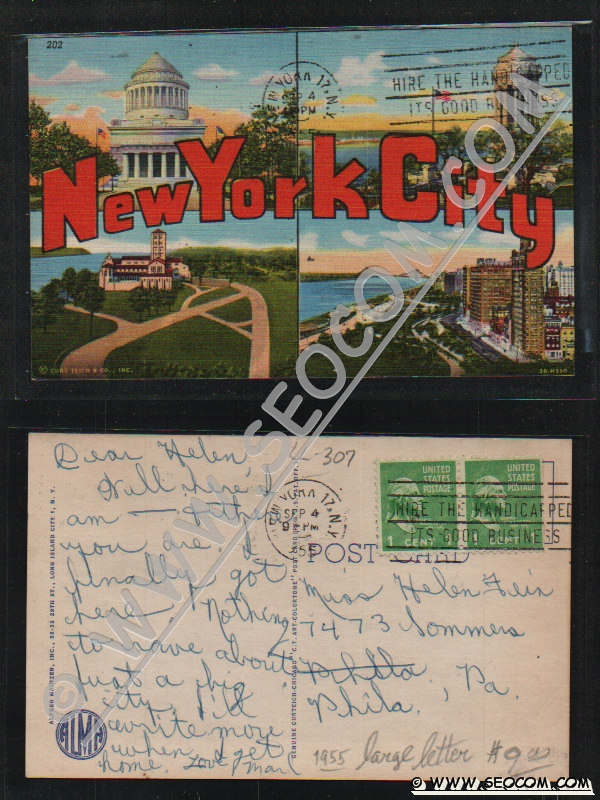 202
NEW YORK 17 N.Y.
4
PM
HIRE THE HANDICAPPED
ITS GOOD BUSINESS
New York City
© CURT TEICH & CO., INC.
© WWW.SEOCOM.COM
Dear Helen
Well here I
am —
you are. I
finally got
here. Nothing
to have about
just a big
city. I'll
write more
when I get
home. Love, Mary
L-307
ALFRED MAINZER, INC., 39-33 29TH ST., LONG ISLAND CITY 1, N. Y.
ALMA
GENUINE CURTEICH-CHICAGO "C.T. ART-COLORTONE" POST CARD
NEW YORK 17 N.Y.
SEP 4
9 PM
UNITED STATES POSTAGE
1 CENT
UNITED STATES POSTAGE
HIRE THE HANDICAPPED
ITS GOOD BUSINESS
POST CARD
Miss Helen Fein
7473 Sommers
Phila
Phila., Pa.
1955 large letter #9.00
© WWW.SEOCOM.COM